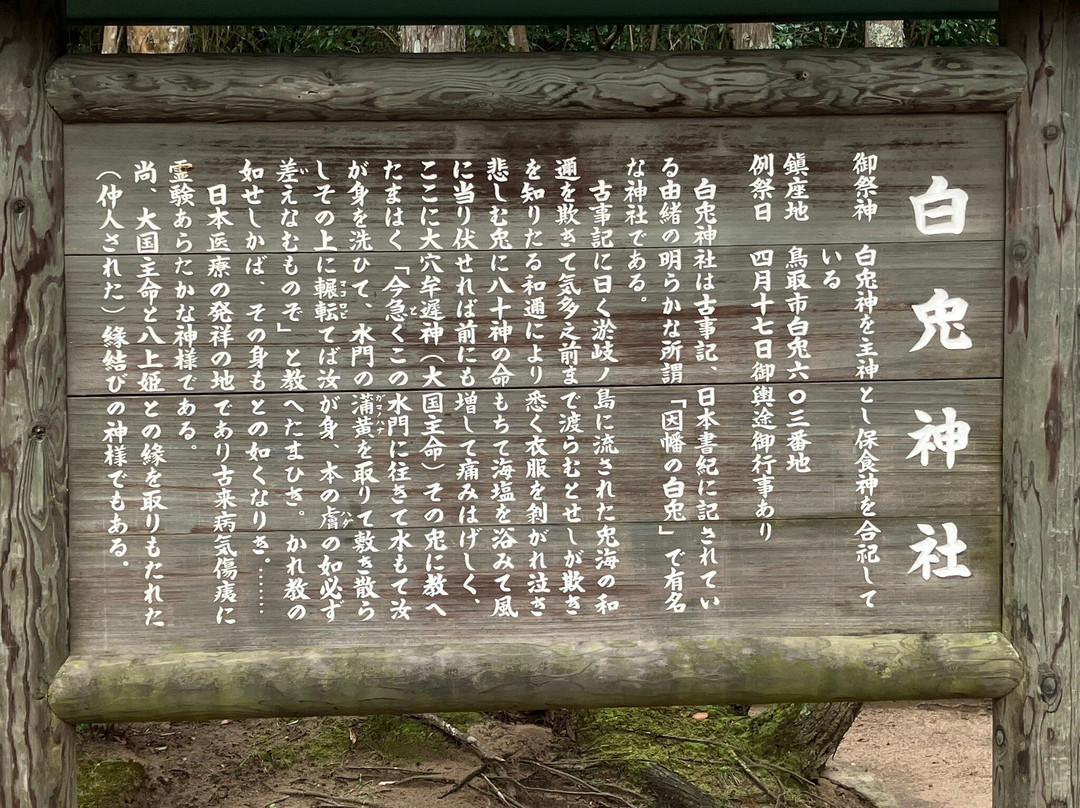 白兎神社
御祭神　白兎神を主神とし保食神を合祀して
いる
鎮座地　鳥取市白兎六〇三番地
例祭日　四月十七日御輿途御行事あり
白兎神社は古事記、日本書紀に記されてい
る由緒の明らかな所謂「因幡の白兎」で有名
な神社である。
古事記に曰く淤岐ノ島に流された兎海の和
邇を欺きて気多之前まで渡らむとせしが欺き
を知りたる和邇により悉く衣服を剝がれ泣き
悲しむ兎に八十神の命もちて海塩を浴みて風
に当り伏せれば前にも増して痛みはげしく、
ここに大穴牟遲神（大国主命）その兎に教へ
たまはく「今急くこの水門に往きて水もて汝
が身を洗ひて、水門の蒲黄を取りて敷き散ら
しその上に輾転てば汝が身、本の膚の如必ず
差えなむものぞ」と教へたまひき。かれ教の
如せしかば、その身もとの如くなりき。……
日本医療の発祥の地であり古来病気傷痍に
霊験あらたかな神様である。
尚、大国主命と八上姫との縁を取りもたれた
（仲人された）縁結びの神様でもある。